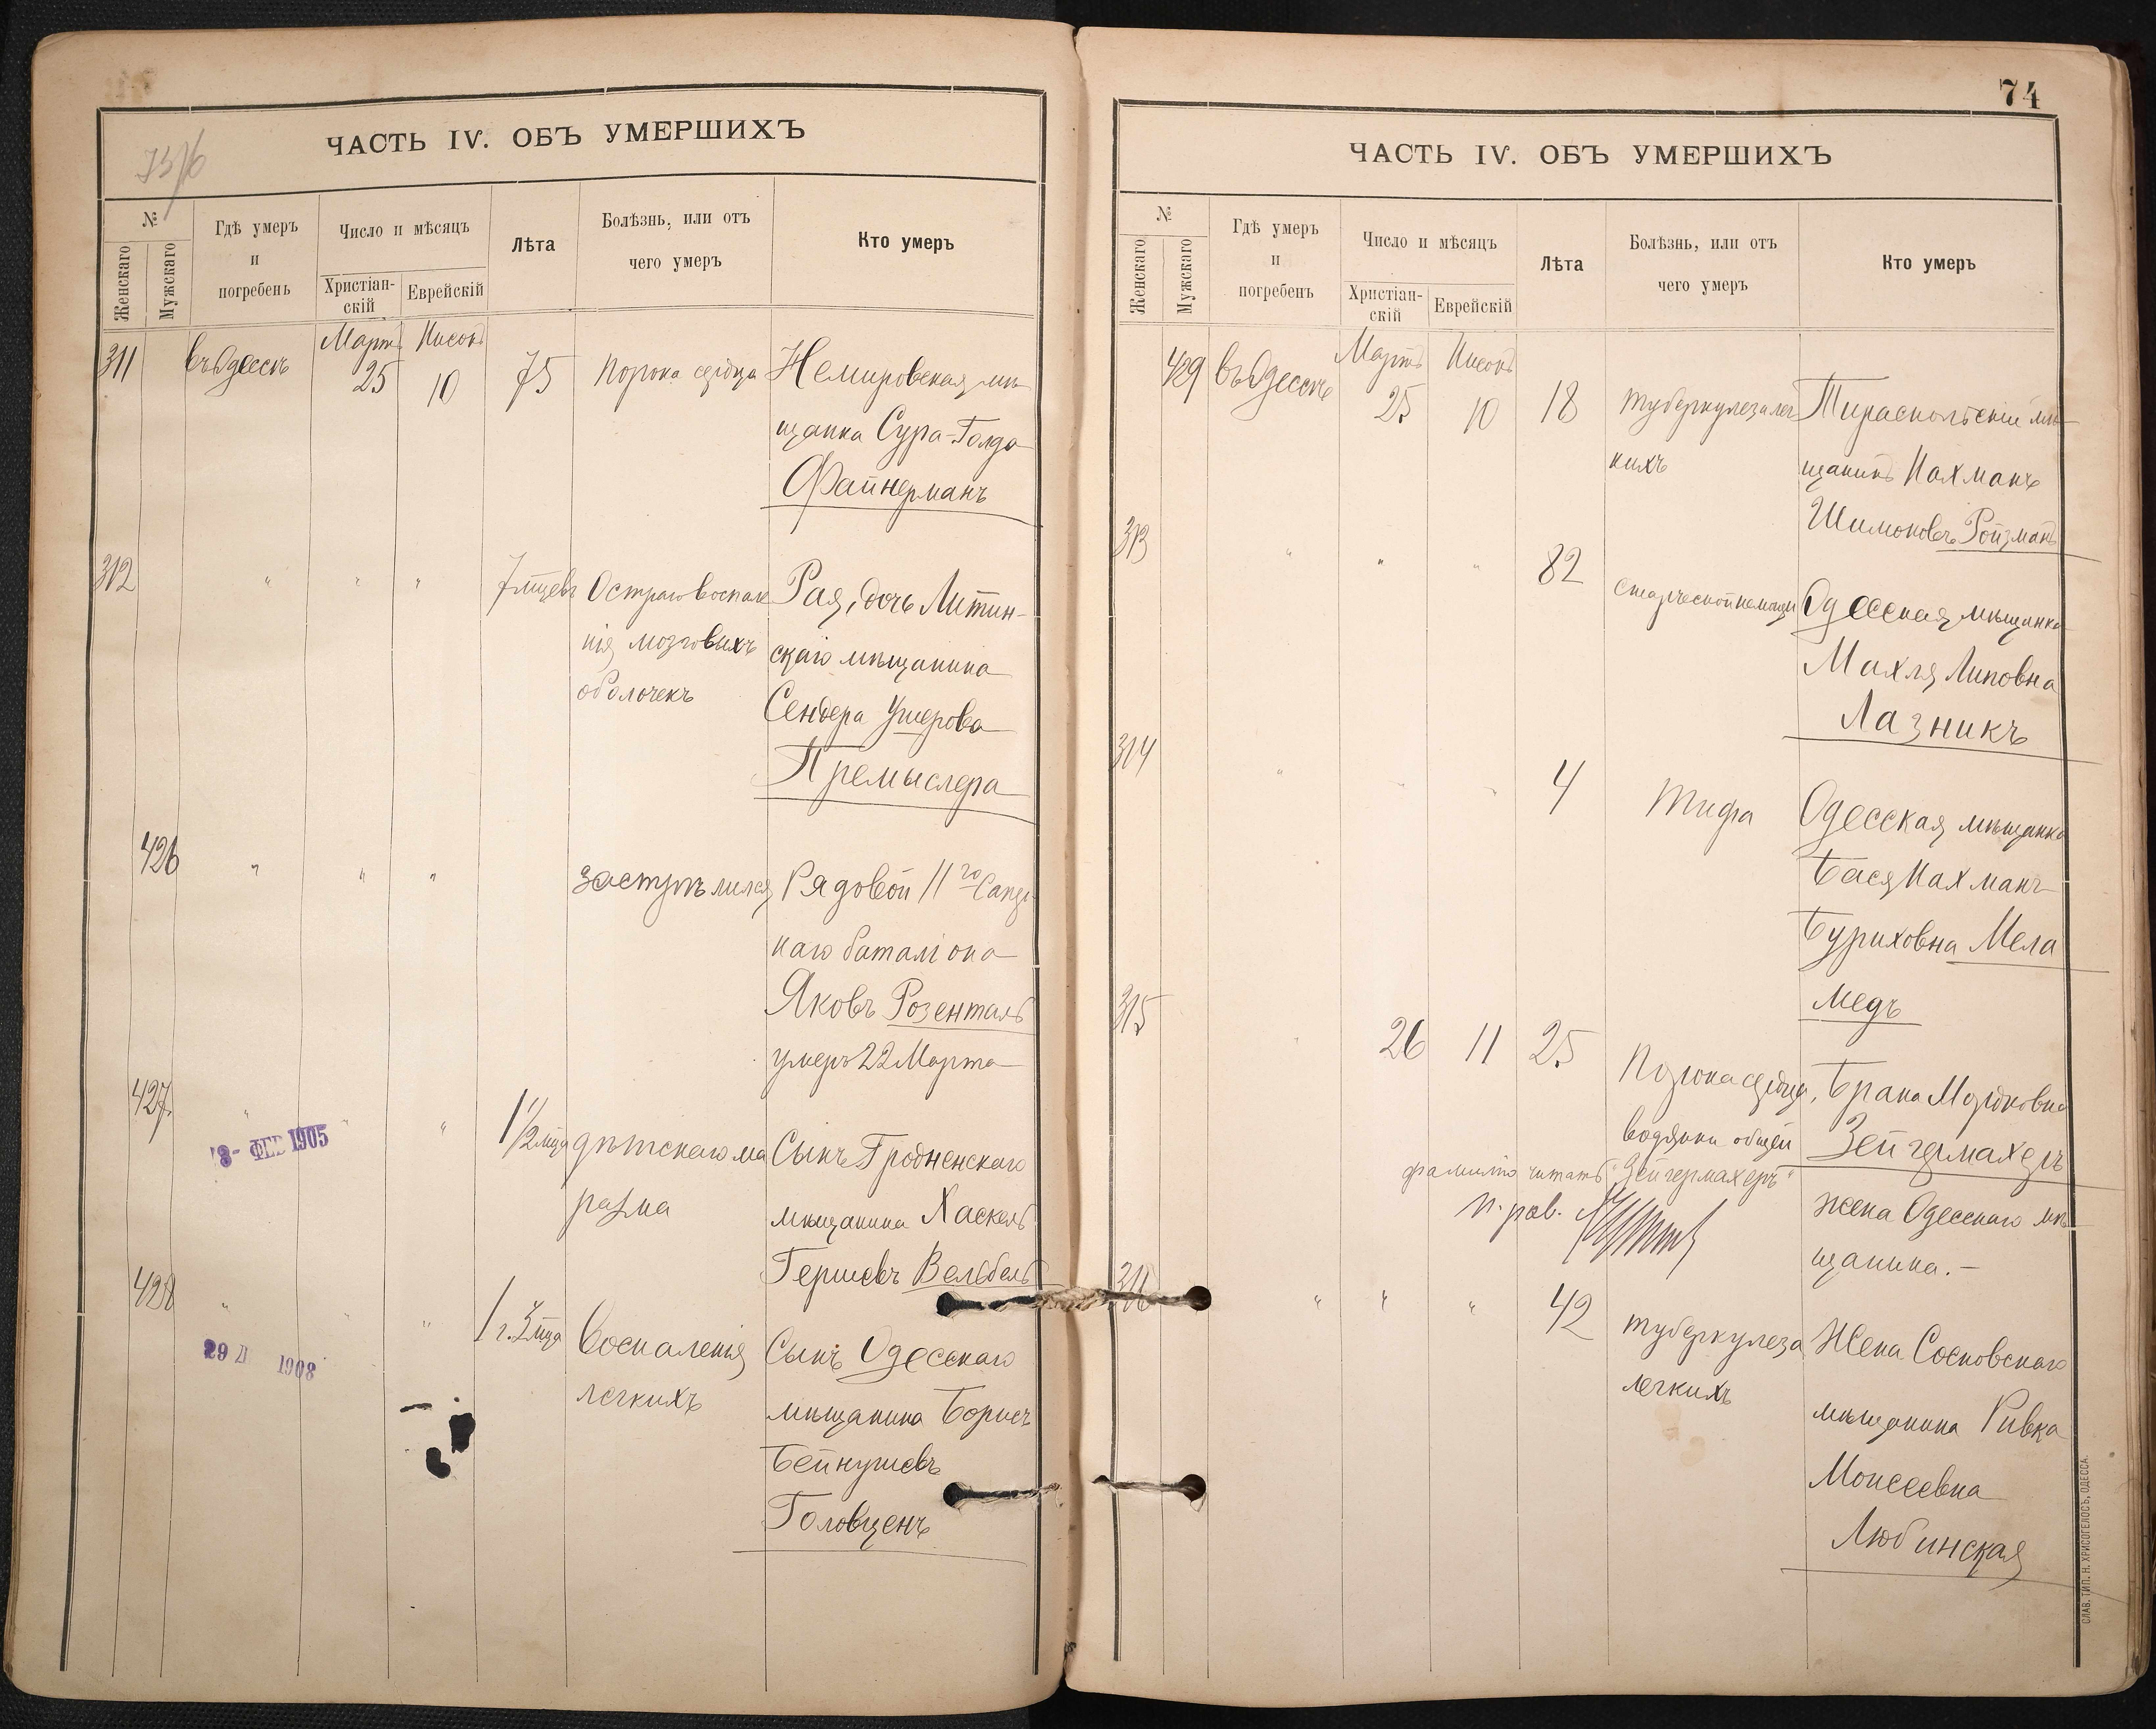 ЧАСТЬ IV. ОБЪ УМЕРШИХЪ
№
Женскаго
Мужскаго
Гдѣ умеръ
и
погребенъ
Число и мѣсяцъ
Христіан-
скій
Еврейскій
Лѣта
Болѣзнь, или отъ
чего умеръ
Кто умеръ
Мартъ Нисонъ
311 въ Одессѣ 25 10 75 Порока сердца Немировская мѣ-
щанка Сура-Голда
Файнерманъ
312 " " " 7 мцевъ Остраго воспале Рая, дочь Литин-
нія мозговыхъ скаго мѣщанина
оболочекъ Сендера Ушерова
Премыслера
426 " " " застрѣлился Рядовой 11го Сапер
наго баталіона
Яковъ Розенталь
умеръ 22 Марта
427 " " " 1 1/2 мца дѣтскаго ма Сынъ Гродненскаго
разма мѣщанина Хаскель
Гершевъ Вельбель
3- ФЕВ 1905
428 " " " 1 г. мца Воспаленія Сынъ Одесскаго
легкихъ мѣщанина Борисъ
Бейнушевъ
Головценъ
29 Д 1908
74
ЧАСТЬ IV. ОБЪ УМЕРШИХЪ
№
Женскаго
Мужскаго
Гдѣ умеръ
и
погребенъ
Число и мѣсяцъ
Христіан-
скій
Еврейскій
Лѣта
Болѣзнь, или отъ
чего умеръ
Кто умеръ
Мартъ Нисонъ
429 въ Одессѣ 25 10 18 туберкулеза лег Тираспольскій мѣ-
кихъ щанинъ Нахманъ
Шимоновъ Ройзманъ
313 " " " 82 старческой немощи Одесская мѣщанка
Махля Липовна
Лазникъ
314 " " " 4 Тифа Одесская мѣщанка
Бася Нахманъ
Буриховна Мела
медъ
315 " 26 11 25 Порока сердца, Брана Мордковна
водянки общей Зейгермахеръ
фамилію читать "Зейгермахеръ"
п. рав.
жена Одесскаго мѣ
щанина.-
316 " " " 42 туберкулеза Жена Сосновскаго
легкихъ мѣщанина Ривка
Моисеевна
Любинская
СЛАВ. ТИП. Н. ХРИСОГЕЛОСЪ, ОДЕССА.